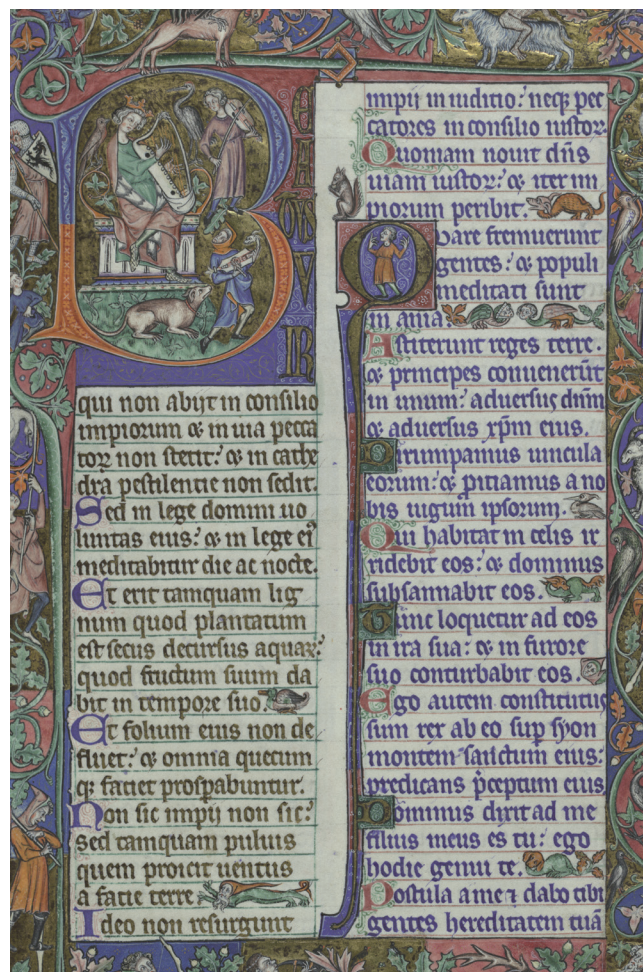 B
EA
TVS
V
IR
qui non abijt in consilio
impiorum & in uia pecca
toꝝ non stetit: & in cathe
dra pestilentie non sedit.
Sed in lege domini uo
luntas eius: & in lege eiꝰ
meditabitur die ac nocte.
Et erit tamquam lig
num quod plantatum
est secus decursus aquaꝝ:
quod fructum suum da
bit in tempore suo.
Et folium eius non de
fluet: & omnia quecum
qꝫ faciet prosꝑabuntur.
Non sic impij non sic:
sed tamquam puluis
quem proicit uentus
a facie terre
Ideo non resurgunt
impij in iuditio: neqꝫ pec
catores in consilio iustoꝝ.
Quoniam nouit dn̄s
uiam iustoꝝ: & iter im
piorum peribit.
Quare fremuerunt
gentes: & populi
meditati sunt
in ania:
Astiterunt reges terre.
& principes conuenerūt
in unum: aduersus dn̄m
& aduersus xp̄m eius.
Dirumpamus uincula
eorum: & ꝓitiamus a no
bis iugum ipsorum.
Qui habitat in celis ir
ridebit eos: & dominus
subsannabit eos.
Tunc loquetur ad eos
in ira sua: & in furore
suo conturbabit eos.
Ego autem constitutus
sum rex ab eo suꝑ syon
montem sanctum eius:
predicans p̄ceptum eius
Dominus dixit ad me
filius meus es tu: ego
hodie genui te.
Postula a me ⁊ dabo tibi
gentes hereditatem tuā